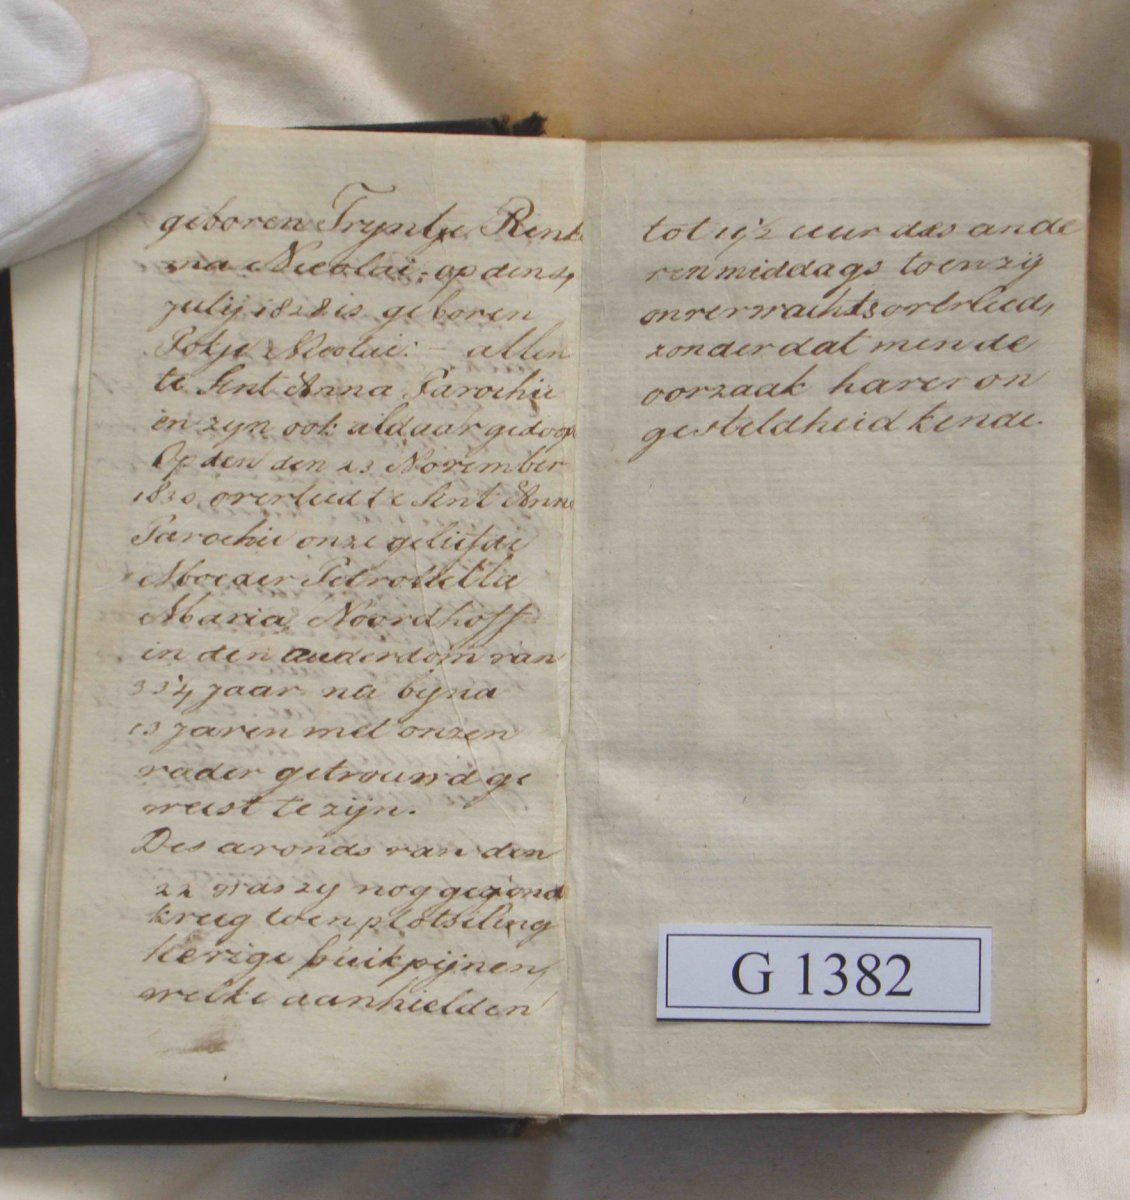 geboren Tryntje Rink
ma Nicolai; op den 4
July 1828 is geboren
Pokje Nicolai: - allen
te Sent Anna Parochie
en zyn ook aldaar gedoop
Op den den 23 November
1830 overleed te Sent Anna
Parochie onze geliefde
Moeder Petronella
Maria Noordhoff
in den ouderdom van
33 1/4 jaar na byna
13 jaren met onzen
vader getrouwd ge
weest te zijn.
Des avonds van den
22 was zy nog gezond
kreeg toen plotseling
hevige buikpijnen,
welke aanhielden
tot 1/2 uur des ande
ren middags toen zij
onverwachts overleed,
zonder dat men de
oorzaak harer on
gesteldheid kende.
G 1382